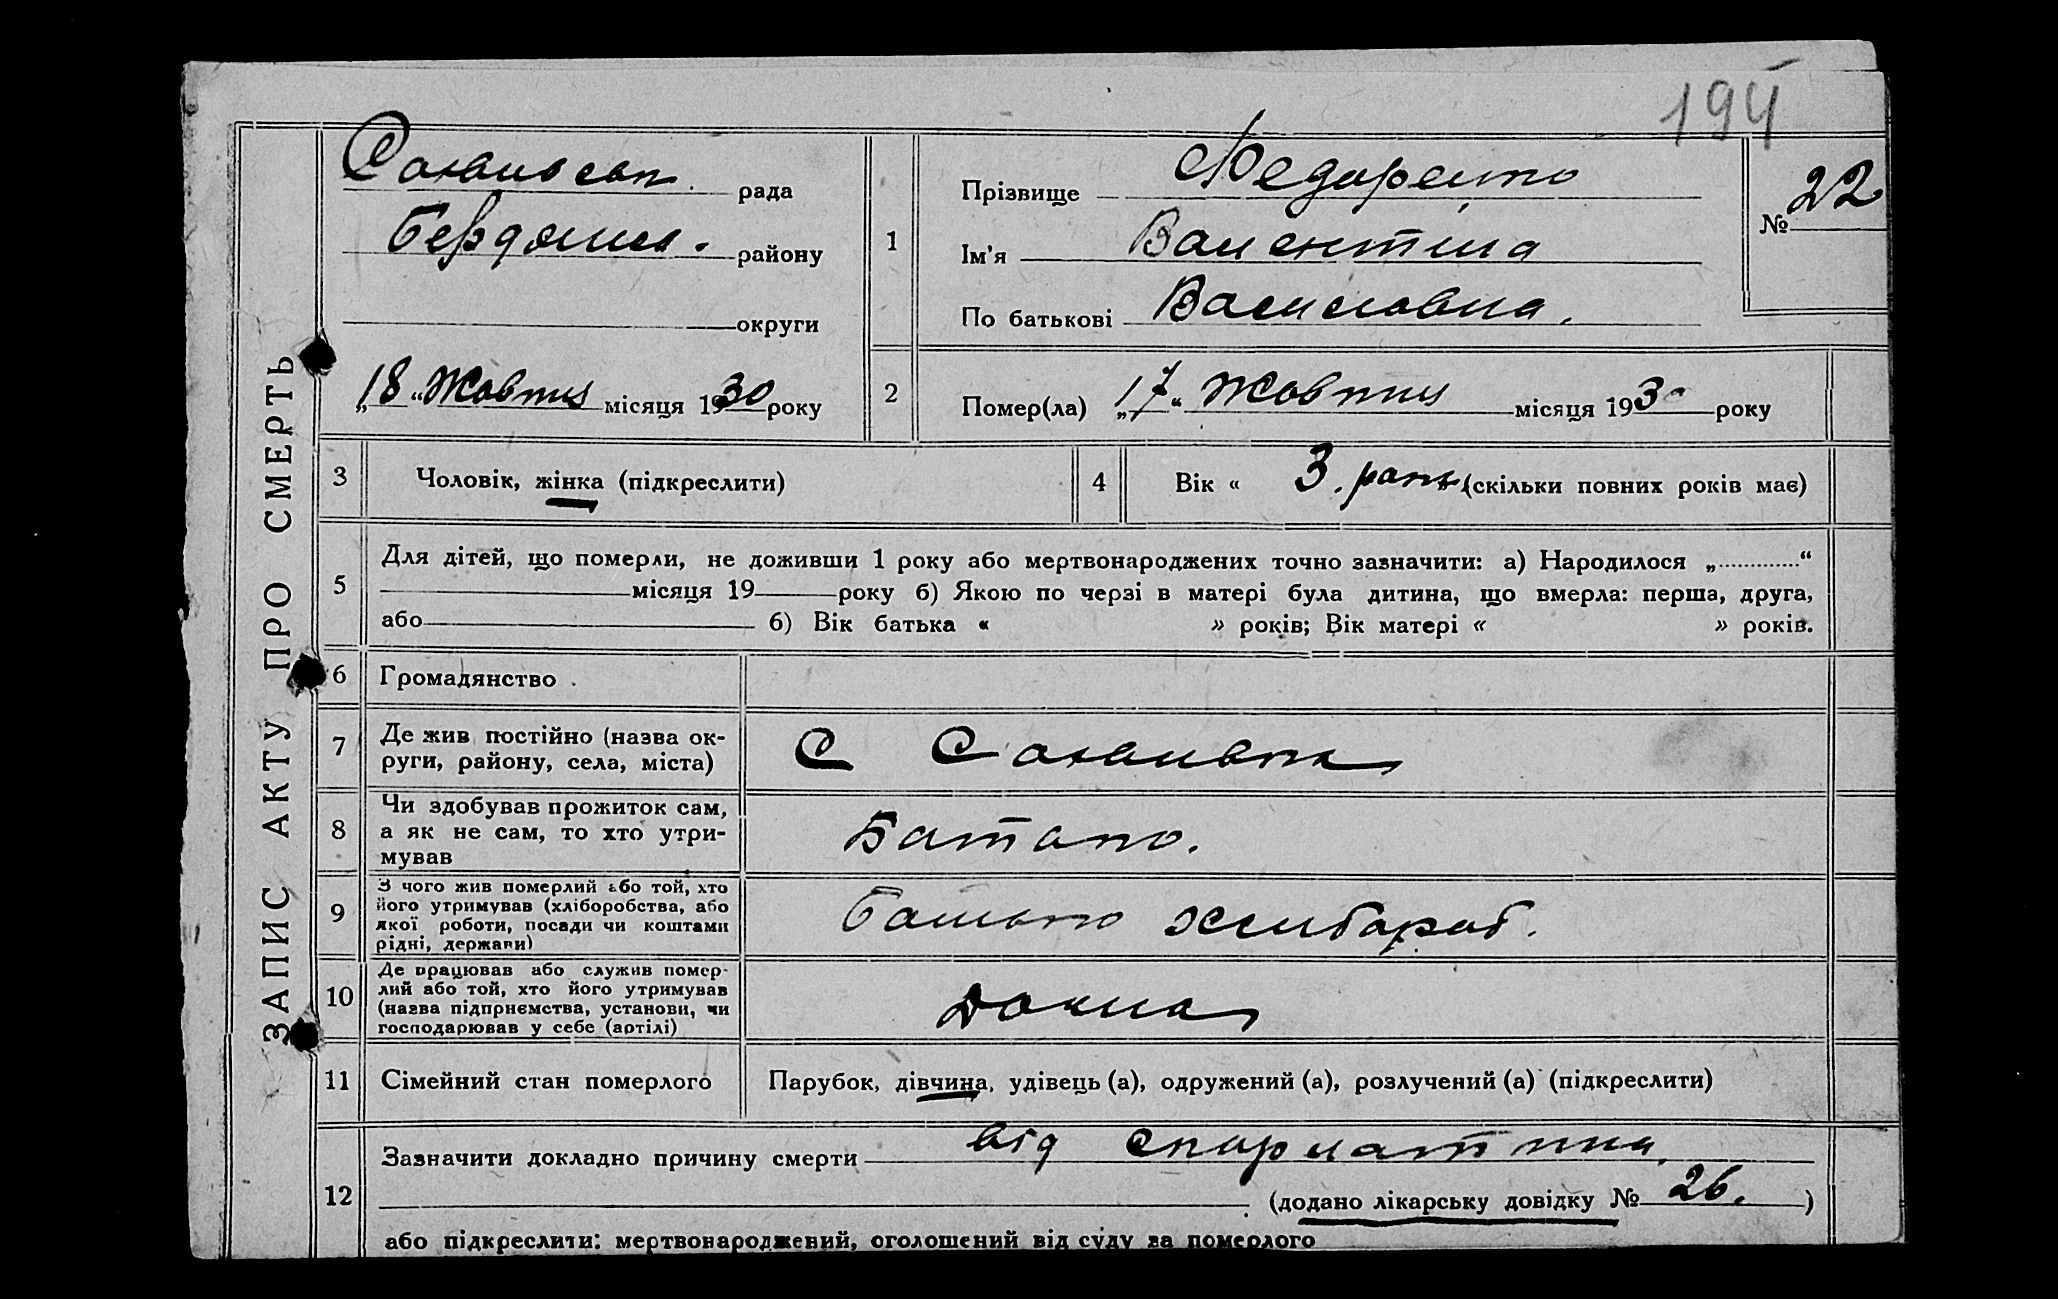 194
Сахановськ. рада
Бердянськ. району
округи
„18“ Жовтня місяця 1930 року
ЗАПИС АКТУ ПРО СМЕРТЬ
1
Прізвище Федоренко
Ім'я Валентина
По батькові Василовна.
№ 22
2
Помер(ла) „17“ Жовтня місяця 1930 року
3 Чоловік, жінка (підкреслити)
4 Вік « 3. рок. » (скільки повних років має)
5 Для дітей, що померли, не доживши 1 року або мертвонароджених точно зазначити: а) Народилося „ “
місяця 19 року б) Якою по черзі в матері була дитина, що вмерла: перша, друга,
або б) Вік батька « » років; Вік матері « » років.
6 Громадянство
7 Де жив постійно (назва ок-
руги, району, села, міста)
С
8 Чи здобував прожиток сам,
а як не сам, то хто утри-
мував
Батько.
9 З чого жив померлий або той, хто
його утримував (хліборобства, або
якої роботи, посади чи коштами
рідні, держави)
Батько хлібороб.
10 Де працював або служив помер-
лий або той, хто його утримував
(назва підприємства, установи, чи
господарював у себе (артілі)
Дома
11 Сімейний стан померлого
Парубок, дівчина, удівець (а), одружений (а), розлучений (а) (підкреслити)
12 Зазначити докладно причину смерти від скарлатини.
(додано лікарську довідку № 26. )
або підкреслити: мертвонароджений, оголошений від суду за померлого